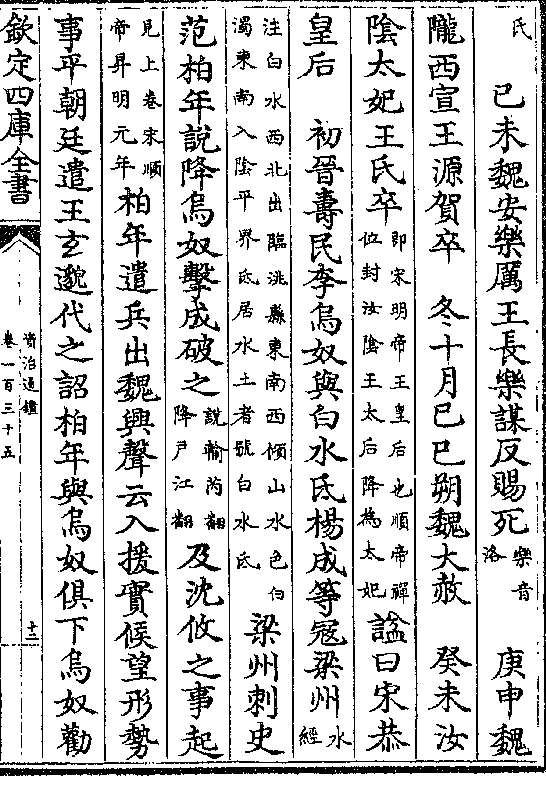 氏 己未魏安樂厲王長樂謀反賜死樂音洛 庚申魏
隴西宣王源賀卒 冬十月己巳朔魏大赦 癸未汝
陰太妃王氏卒即宋明帝王皇后也順帝禪位封汝陰王太后降為太妃諡曰宋恭
皇后 初晉壽民李烏奴與白水氐楊成等寇梁州水經
注白水西北出臨洮縣東南西傾山水色白濁東南入陰平界氐居水土者號白水氐梁州刺史
范柏年說降烏奴擊成破之說輸芮翻降戶江翻及沈攸之事起
見上卷宋順帝昇明元年柏年遣兵出魏興聲云入援實候望形勢
事平朝廷遣王玄邈代之詔柏年與烏奴俱下烏奴勸
欽定四庫全書
資治通鑑
卷一百三十五
十二